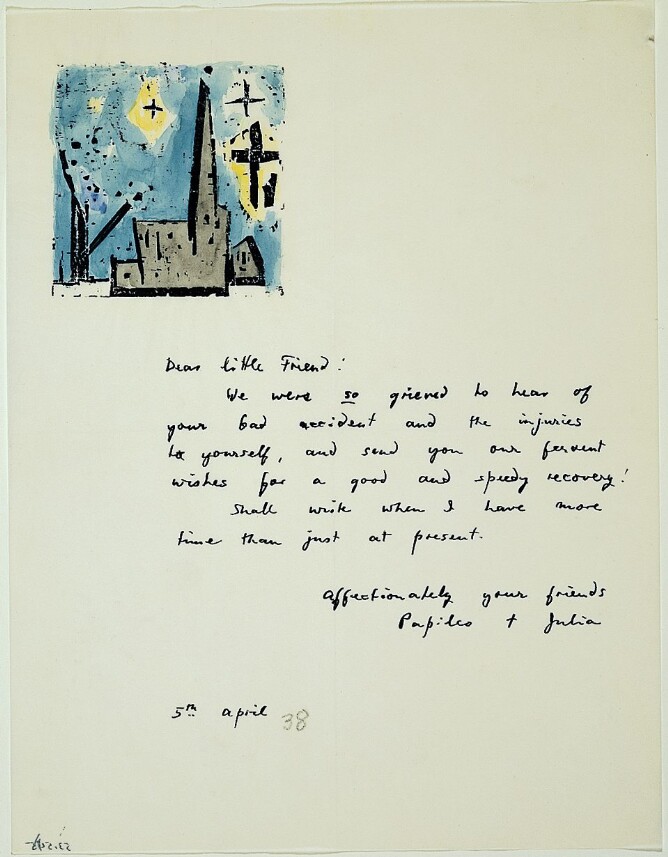 Dear little Friend!
We were so grieved to hear of
your bad accident and the injuries
to yourself, and send you our fervent
wishes for a good and speedy recovery!
Shall write when I have more
time than just at present.
Affectionately your friends
Papileo + Julia
5th april 38